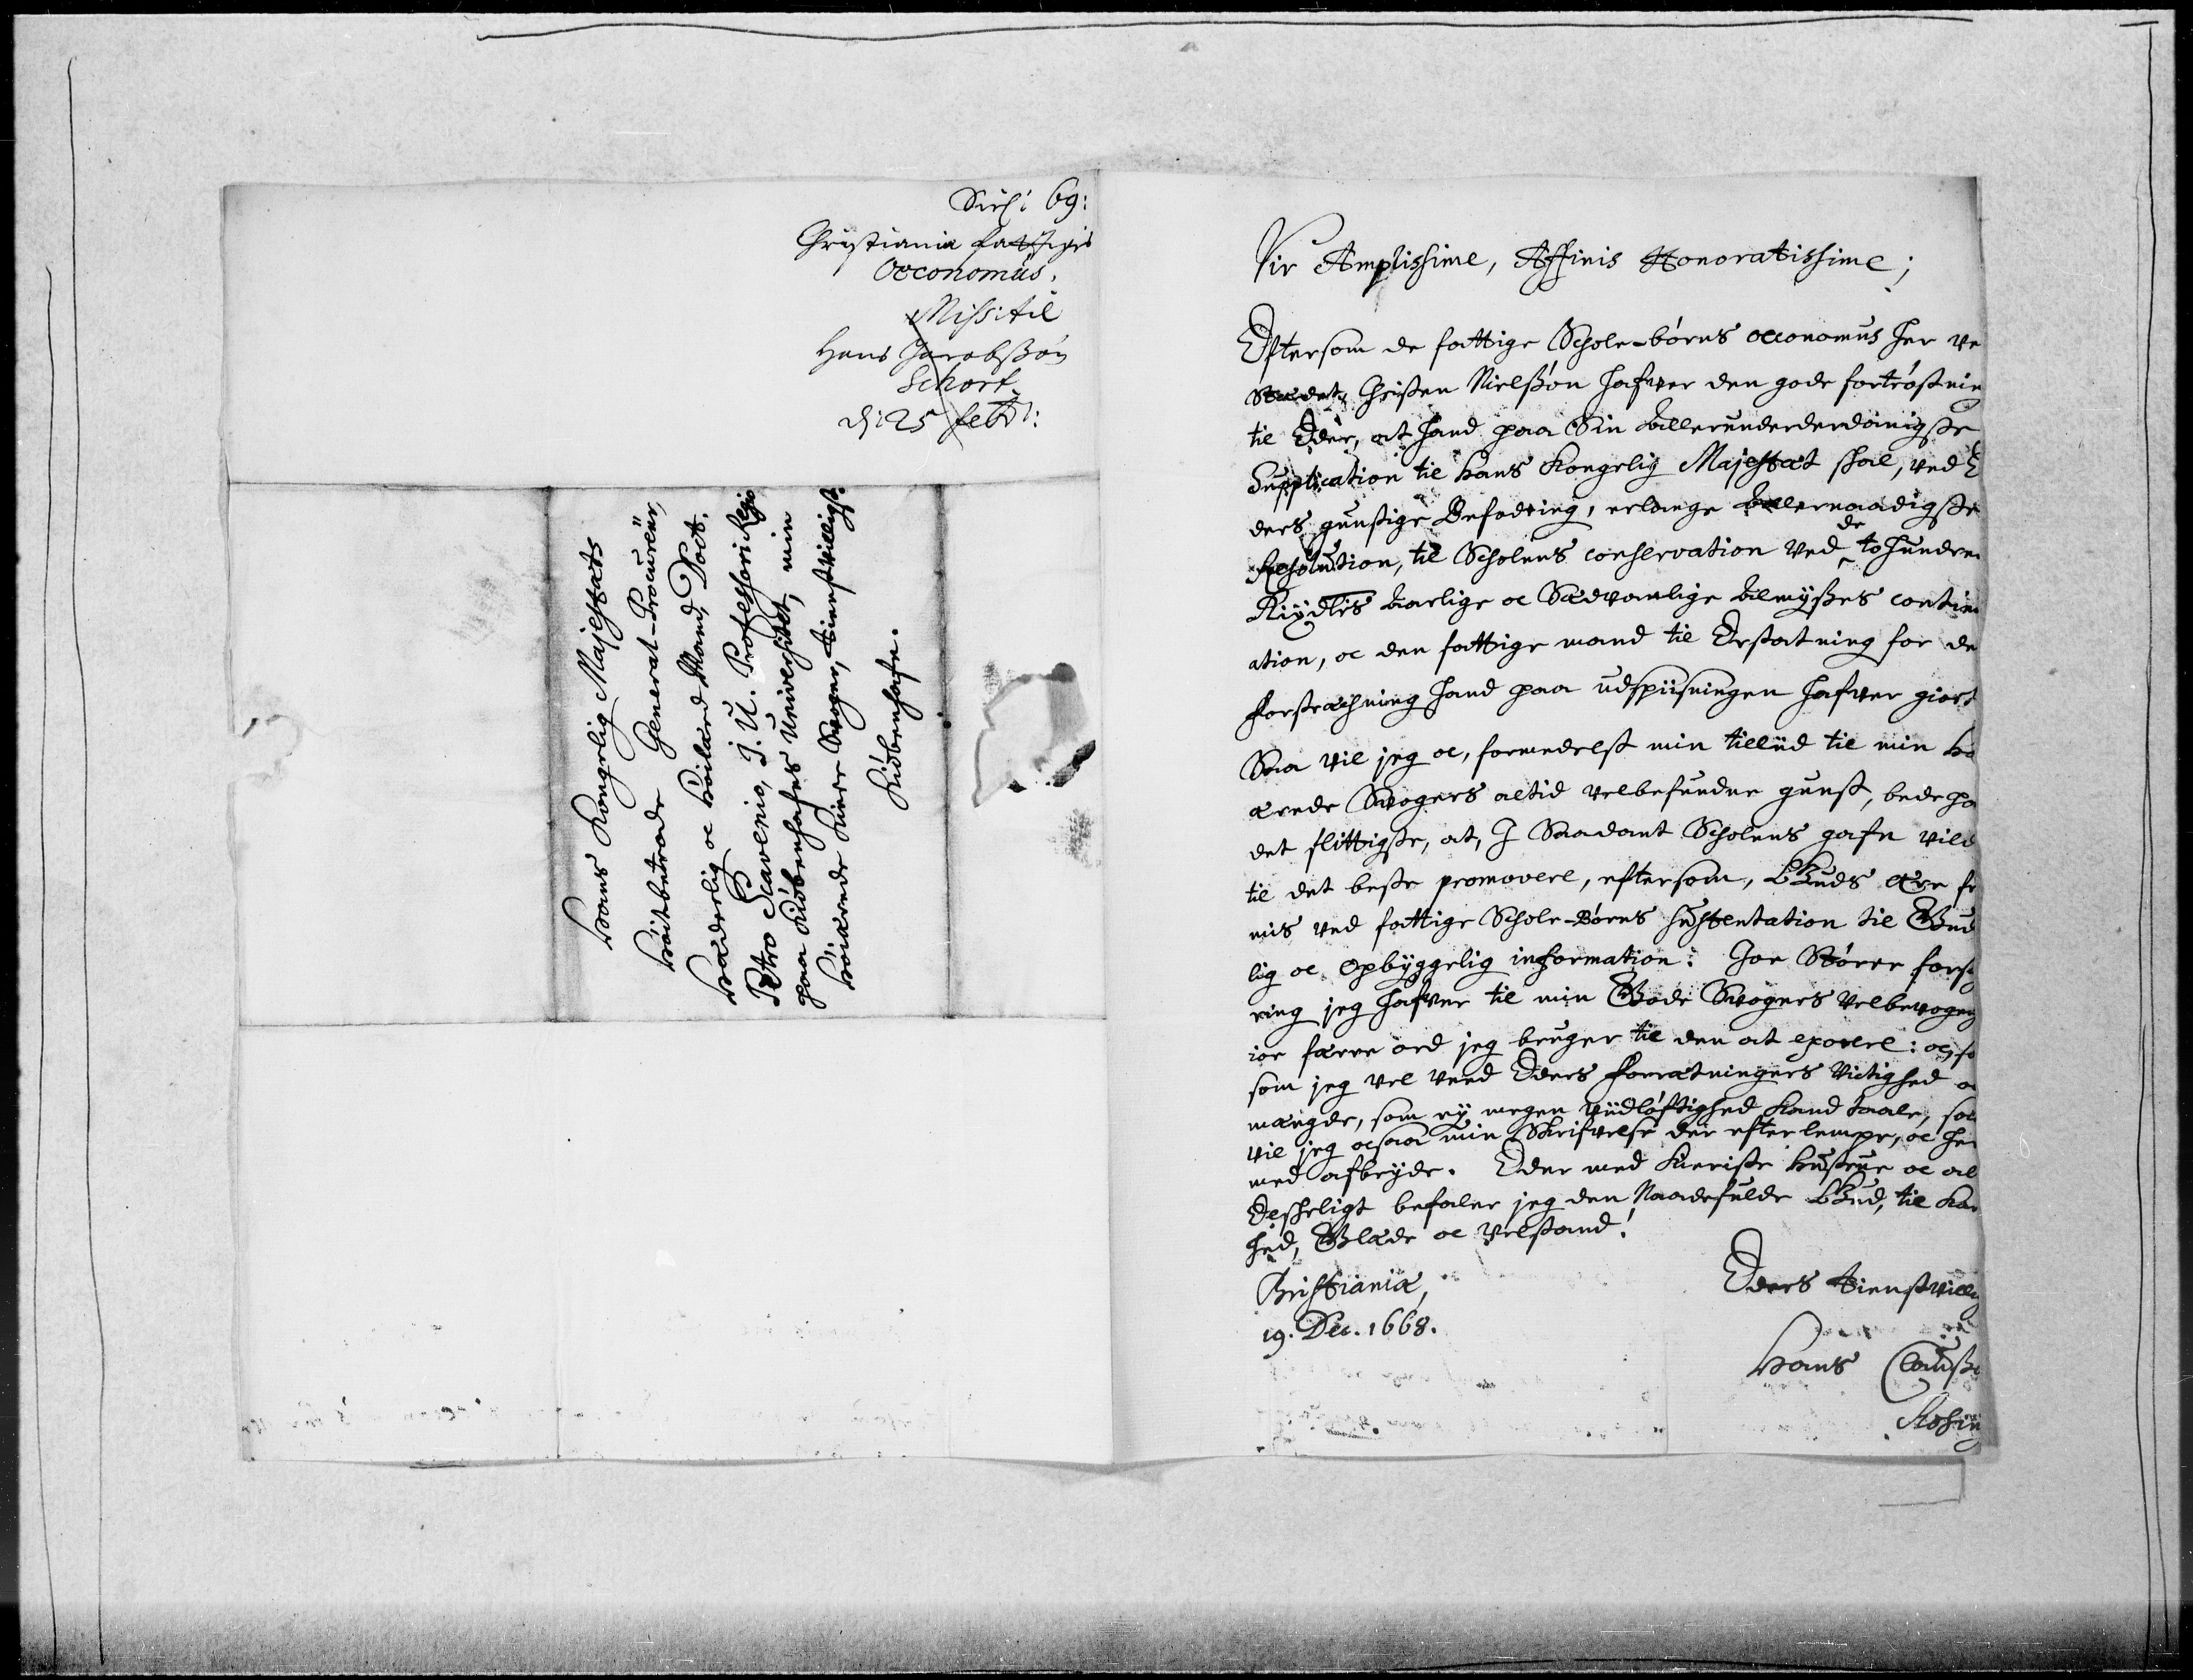 69:
Christianiæ fattigis
Oeconomüs.
Miss: til
Hans Jacobsøn
Schort.
d: 25 febr:
Hans Kongelig Majestats
Höitbetroede General-Procureür,
Hæderlig oc Höilærd Mand, Doct.
Petro Scavenio, J. U. Professori Regio
paa Kiöbenhafns Universitet, min
Höiærede kiere Svoger, tienstvilligst.
Kiöbenhafn.
Vir Amplissime, Affinis Honoratissime;
Eftersom de fattige Schole-börns oeconomus her ve
Stædet, Christen Nielssön hafver den gode fortröstnin
til Eder, at hand paa Sin allerunderdanigste
Supplication til Hans Kongelig Majestæt skal, ved E
ders gunstige Befodring, erlange allernaadigste
Resolution, til Scholens conservation ved de to hundre
Rixdlrs aarlige oc Sædvanlige almyssis continu
ation, oc den fattige mand til Erstatning for de
forstrachning hand paa udspiisningen hafver giort
Saa vil jeg oc, formedelst min tilliid til min hö
ærede Svogers altid velbefundne gunst, bede pa
det flittigste, at, I Saadant Scholens gafn vild
til det beste promovere, eftersom, Guds ære fr
mis ved fattige Schole-Börns Sustentation til Gud
lig oc Opbyggelig information. Joe Större fors
ring jeg hafver til min Gode Svogers velbevogen
joe færre ord jeg bruger til den at exorere: oc, so
som jeg vel veed Eders forrætningers Victighed o
mængde, som ey megen viidlöftighed kand taale, saa
vil jeg ocsaa min Skrifvelse der efter lempe, oc her
med afbryde. Eder med kieriste hustrue oc al
Desheligt befaler jeg den Naadefulde Gud, til kar
hed, Glæde oc Velstand!
Christianiæ,
19. Dec. 1668.
Eders tienstvillig
Hans Clauss
Rosing